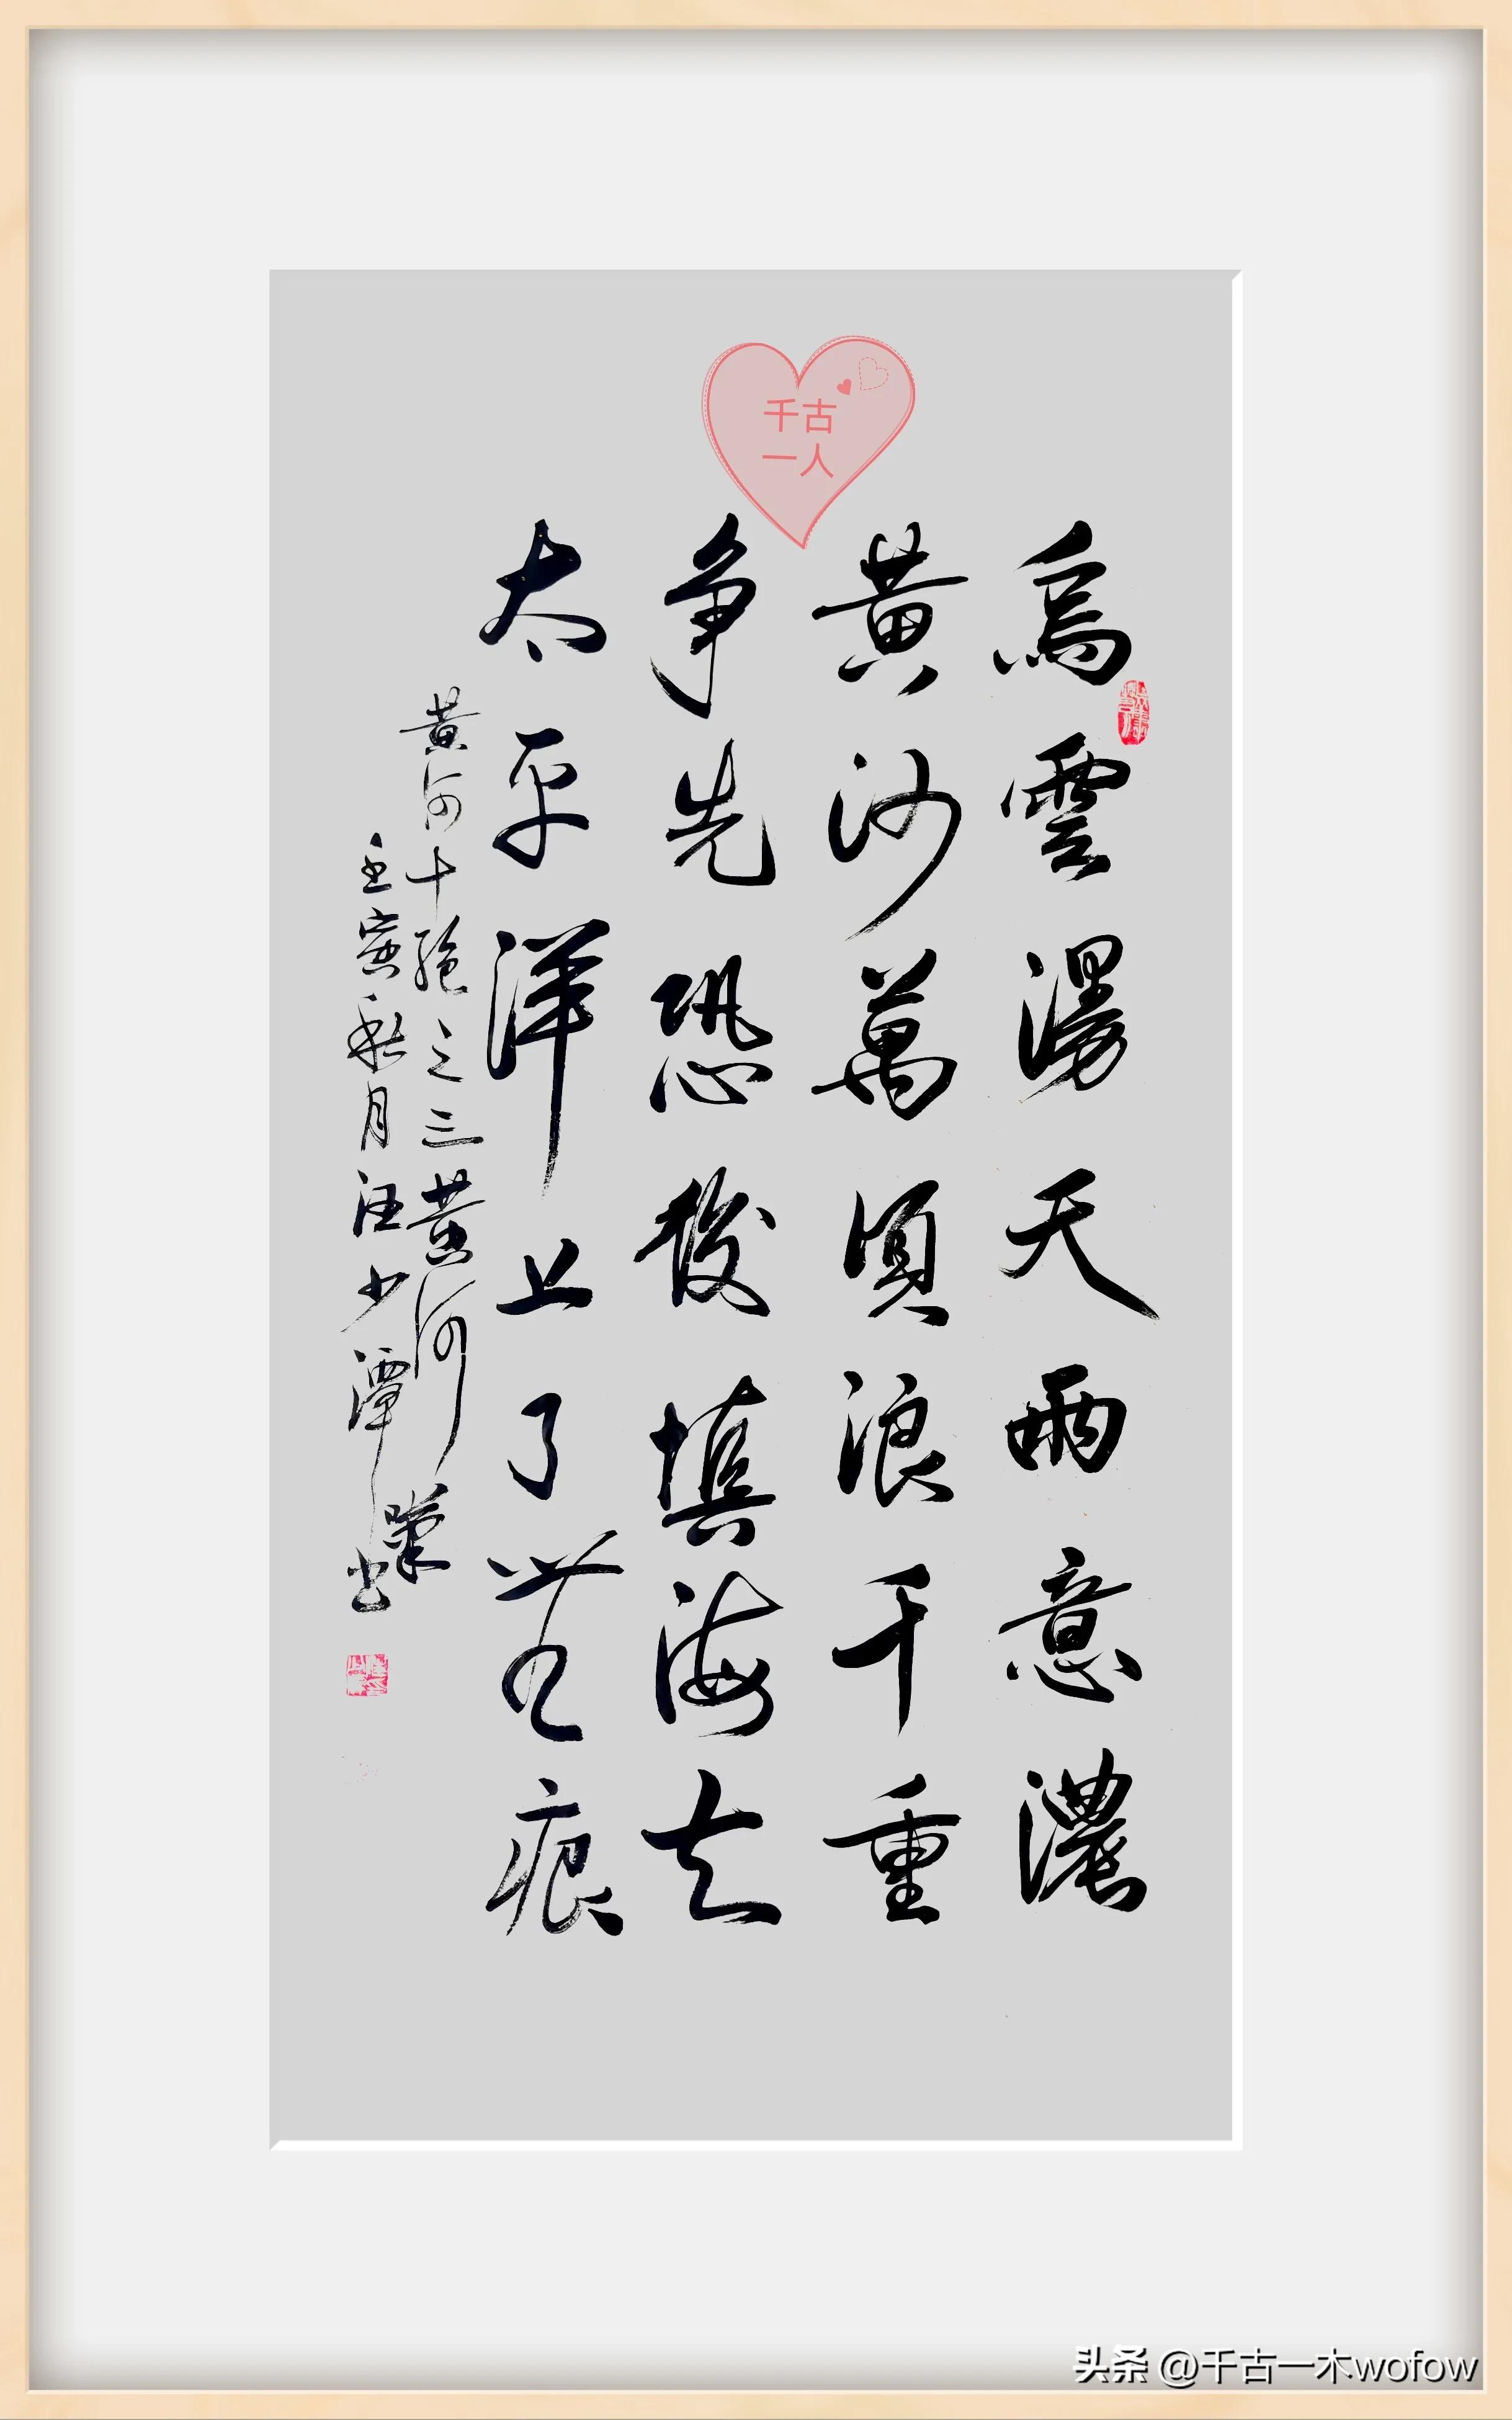 千古
一人
烏雲漫天雨意濃
黃沙萬頃浪千重
爭先恐後填海去
太平洋上了無痕
黃河十絕之三黃河
壬寅秋月汪少潭書
头条 @千古一木wofow